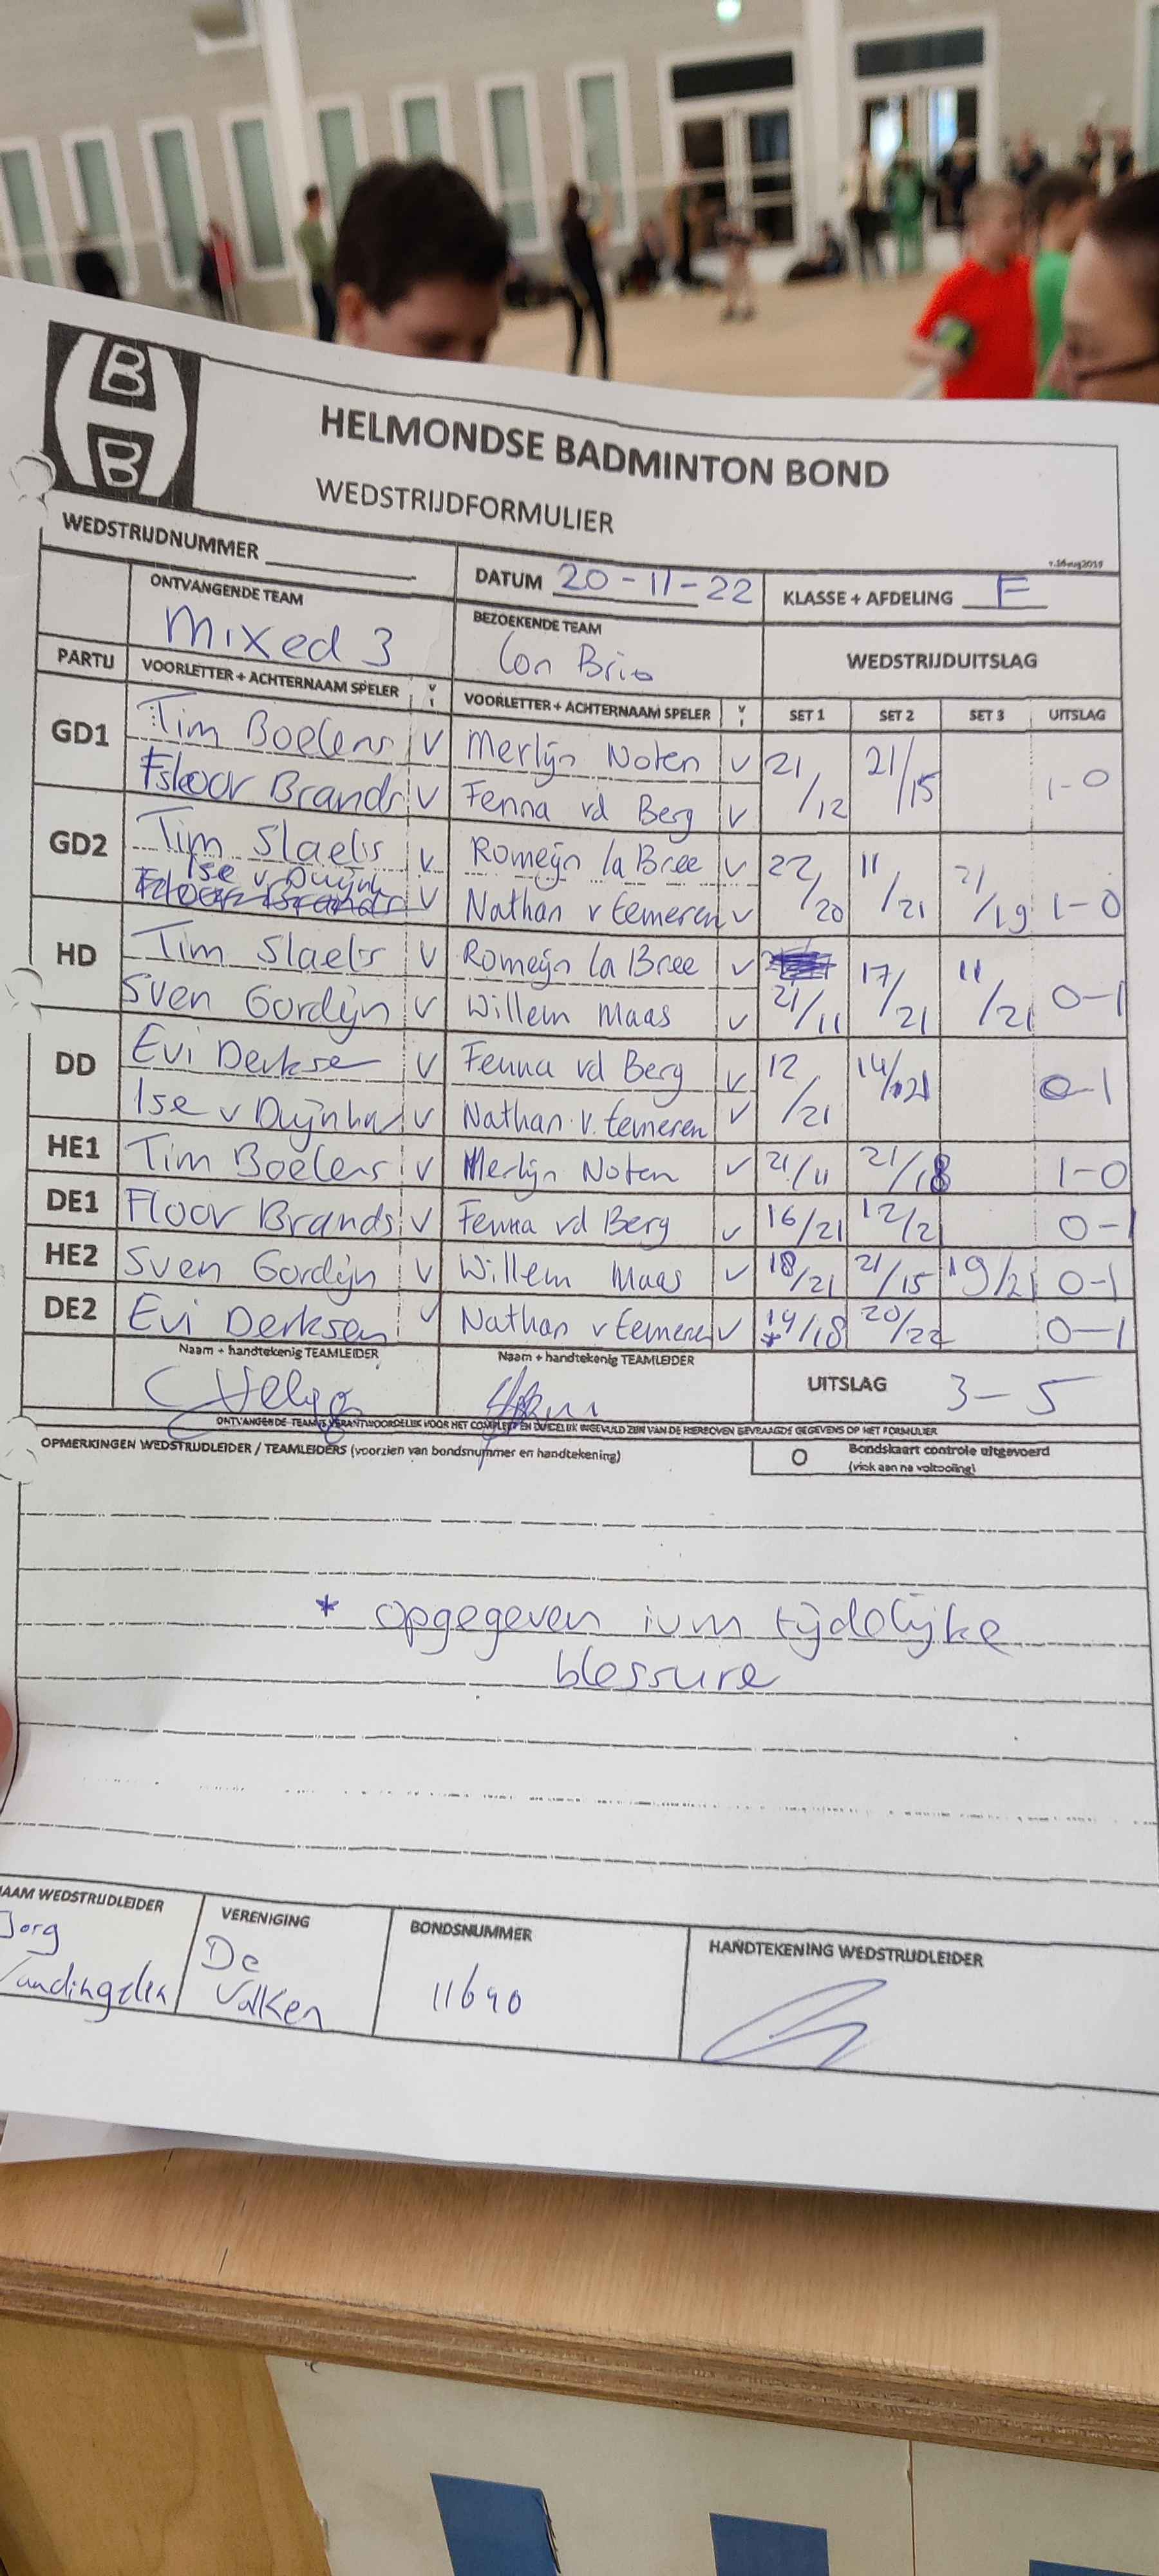 HELMONDSE BADMINTON BOND
WEDSTRIJDFORMULIER
WEDSTRIJDNUMMER
DATUM 20-11-22
KLASSE + AFDELING F
ONTVANGENDE TEAM
Mixed 3
BEZOEKENDE TEAM
Con Brio
WEDSTRIJDUITSLAG
PARTIJ VOORLETTER + ACHTERNAAM SPELER V I VOORLETTER + ACHTERNAAM SPELER V I SET 1 SET 2 SET 3 UITSLAG
GD1 Tim Boelens V Merlijn Noten V 21/12 21/15 1-0
Floor Brands V Fenna vd Berg V
GD2 Tim Slaets V Romeijn la Bree V 22/20 11/21 21/19 1-0
Ise v Duijnh V Nathan v Eemeren V
HD Tim Slaets V Romeijn la Bree V 21/11 17/21 11/21 0-1
Sven Gordijn V Willem Maas V
DD Evi Derkse V Fenna vd Berg V 12/21 14/21 0-1
Ise v Duijnho V Nathan v. Eemeren V
HE1 Tim Boelens V Merlijn Noten V 21/11 21/18 1-0
DE1 Floor Brands V Fenna vd Berg V 16/21 12/21 0-1
HE2 Sven Gordijn V Willem Maas V 18/21 21/15 19/21 0-1
DE2 Evi Derksen V Nathan v Eemeren V 14/18 * 20/22 0-1
Naam + handtekenig TEAMLEIDER
Naam + handtekenig TEAMLEIDER
UITSLAG 3-5
ONTVANGENDE TEAM IS VERANTWOORDELIJK VOOR HET COMPLEET EN DUIDELIJK INGEVULD ZIJN VAN DE HIERBOVEN GEVRAAGDE GEGEVENS OP HET FORMULIER
OPMERKINGEN WEDSTRIJDLEIDER / TEAMLEIDERS (voorzien van bondsnummer en handtekening)
O Bondskaart controle uitgevoerd
(vink aan na voltooiing)
* opgegeven ivm tijdelijke
blessure
NAAM WEDSTRIJDLEIDER
Jorg
VERENIGING
De
Valken
BONDSNUMMER
11690
HANDTEKENING WEDSTRIJDLEIDER